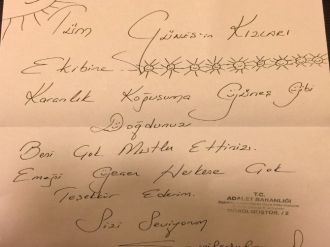 Tüm Güneşin Kızları
Ekibine
Karanlık Koğuşuma Güneş Gibi
Doğdunuz
Beni Çok Mutlu Ettiniz.
Emeği Geçen Herkese Çok
Teşekkür Ederim.
T.C.
ADALET BAKANLIĞI
Sizi Seviyorum